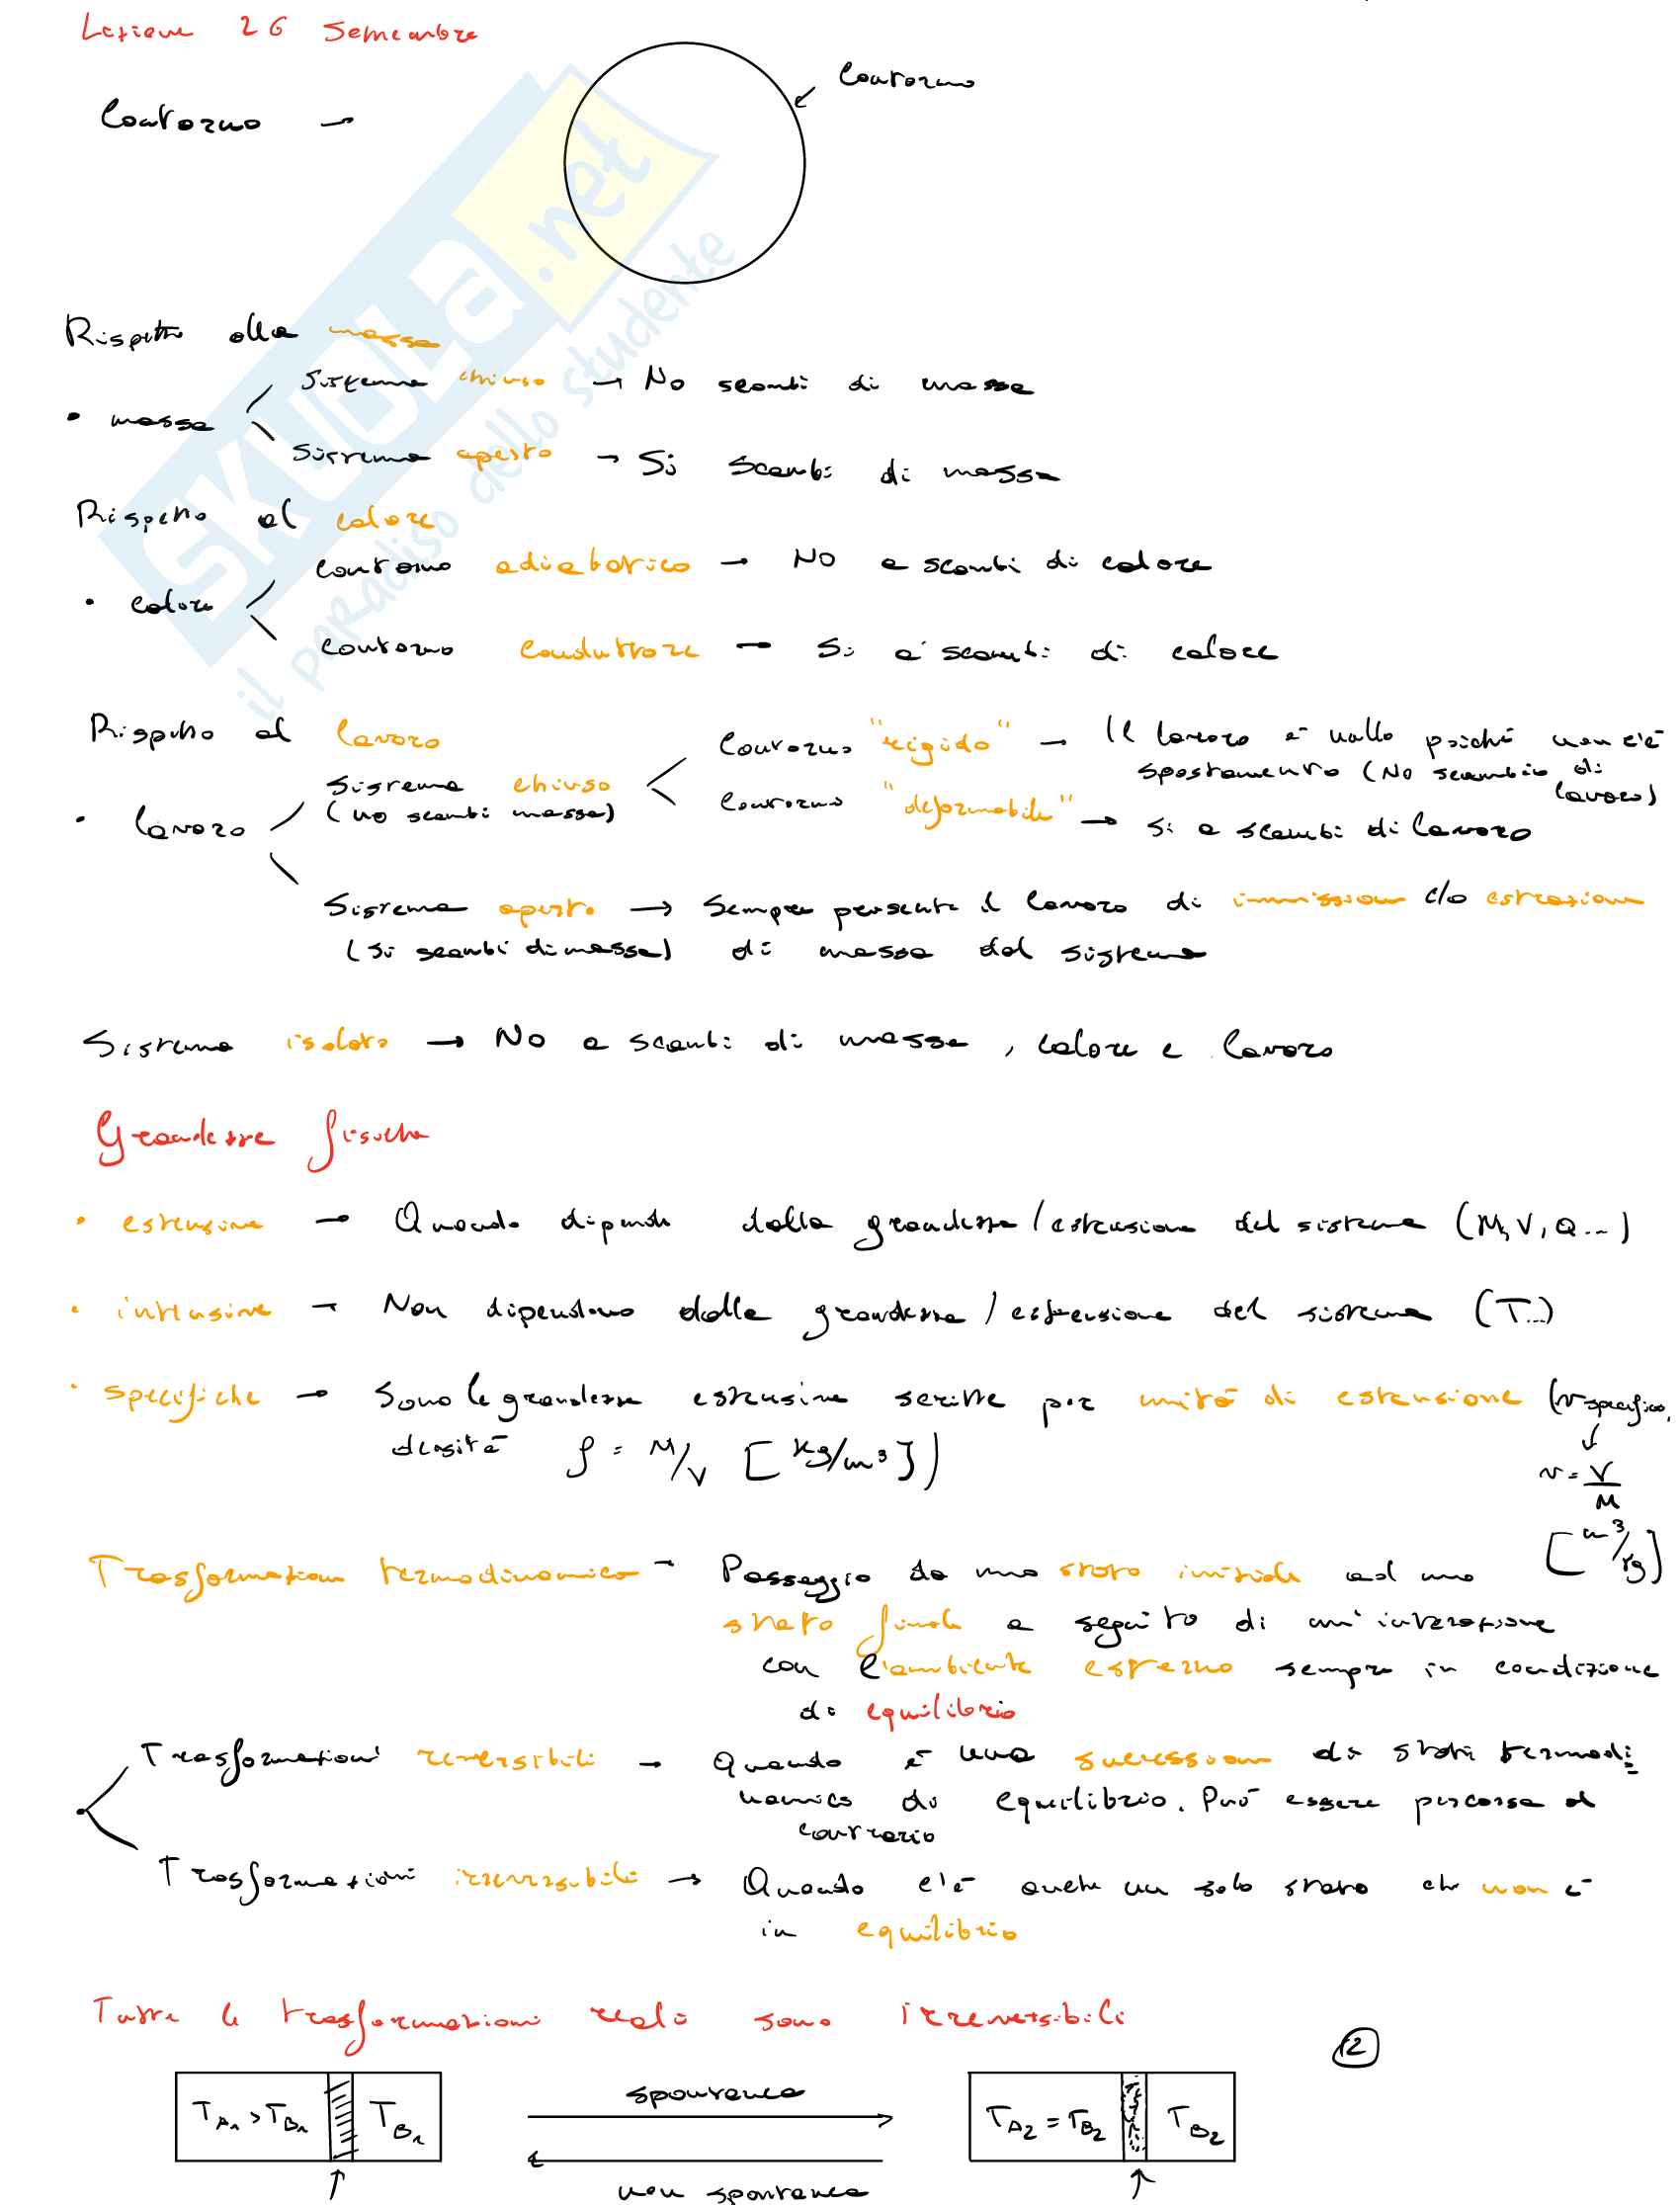 Lezione 26 Settembre
Contorno →
Contorno
Rispetto alla massa
• massa
Sistema chiuso → No scambi di massa
Sistema aperto → Si scambi di massa
Rispetto al calore
• calore
contorno adiabatico → No a scambi di calore
contorno conduttore → Si a scambi di calore
Rispetto al lavoro
• lavoro
Sistema chiuso
(no scambi massa)
Contorno "rigido" → Il lavoro è nullo poichè non c'è
spostamento (No scambio di
lavoro)
Contorno "deformabile" → Si a scambi di lavoro
Sistema aperto → Sempre presente il lavoro di immissione e/o estrazione
(Si scambi di massa) di massa dal sistema
Sistema isolato → No a scambi di massa, calore e lavoro
Grandezze fisiche
• estensive → Quando dipende dalla grandezza/estensione del sistema (M, V, Q...)
• intensive → Non dipendono dalla grandezza/estensione del sistema (T...)
• specifiche → Sono le grandezze estensive scritte per unità di estensione (v specifico,
densità ρ = M/V [kg/m³])
v = V/M
[m³/kg]
Trasformazione termodinamica → Passaggio da uno stato iniziale ad uno
stato finale a seguito di un'interazione
con l'ambiente esterno sempre in condizione
di equilibrio
Trasformazioni reversibili → Quando è una successione di stati termodi
namici di equilibrio. Può essere percorsa al
contrario
Trasformazioni irreversibili → Quando c'è anche un solo stato che non è
in equilibrio
Tutte le trasformazioni reali sono irreversibili
12
TA1 > TB1 TB1
spontanea
non spontanea
TA2 = TB2 TB2
SKUOLA.net
il paradiso dello studente